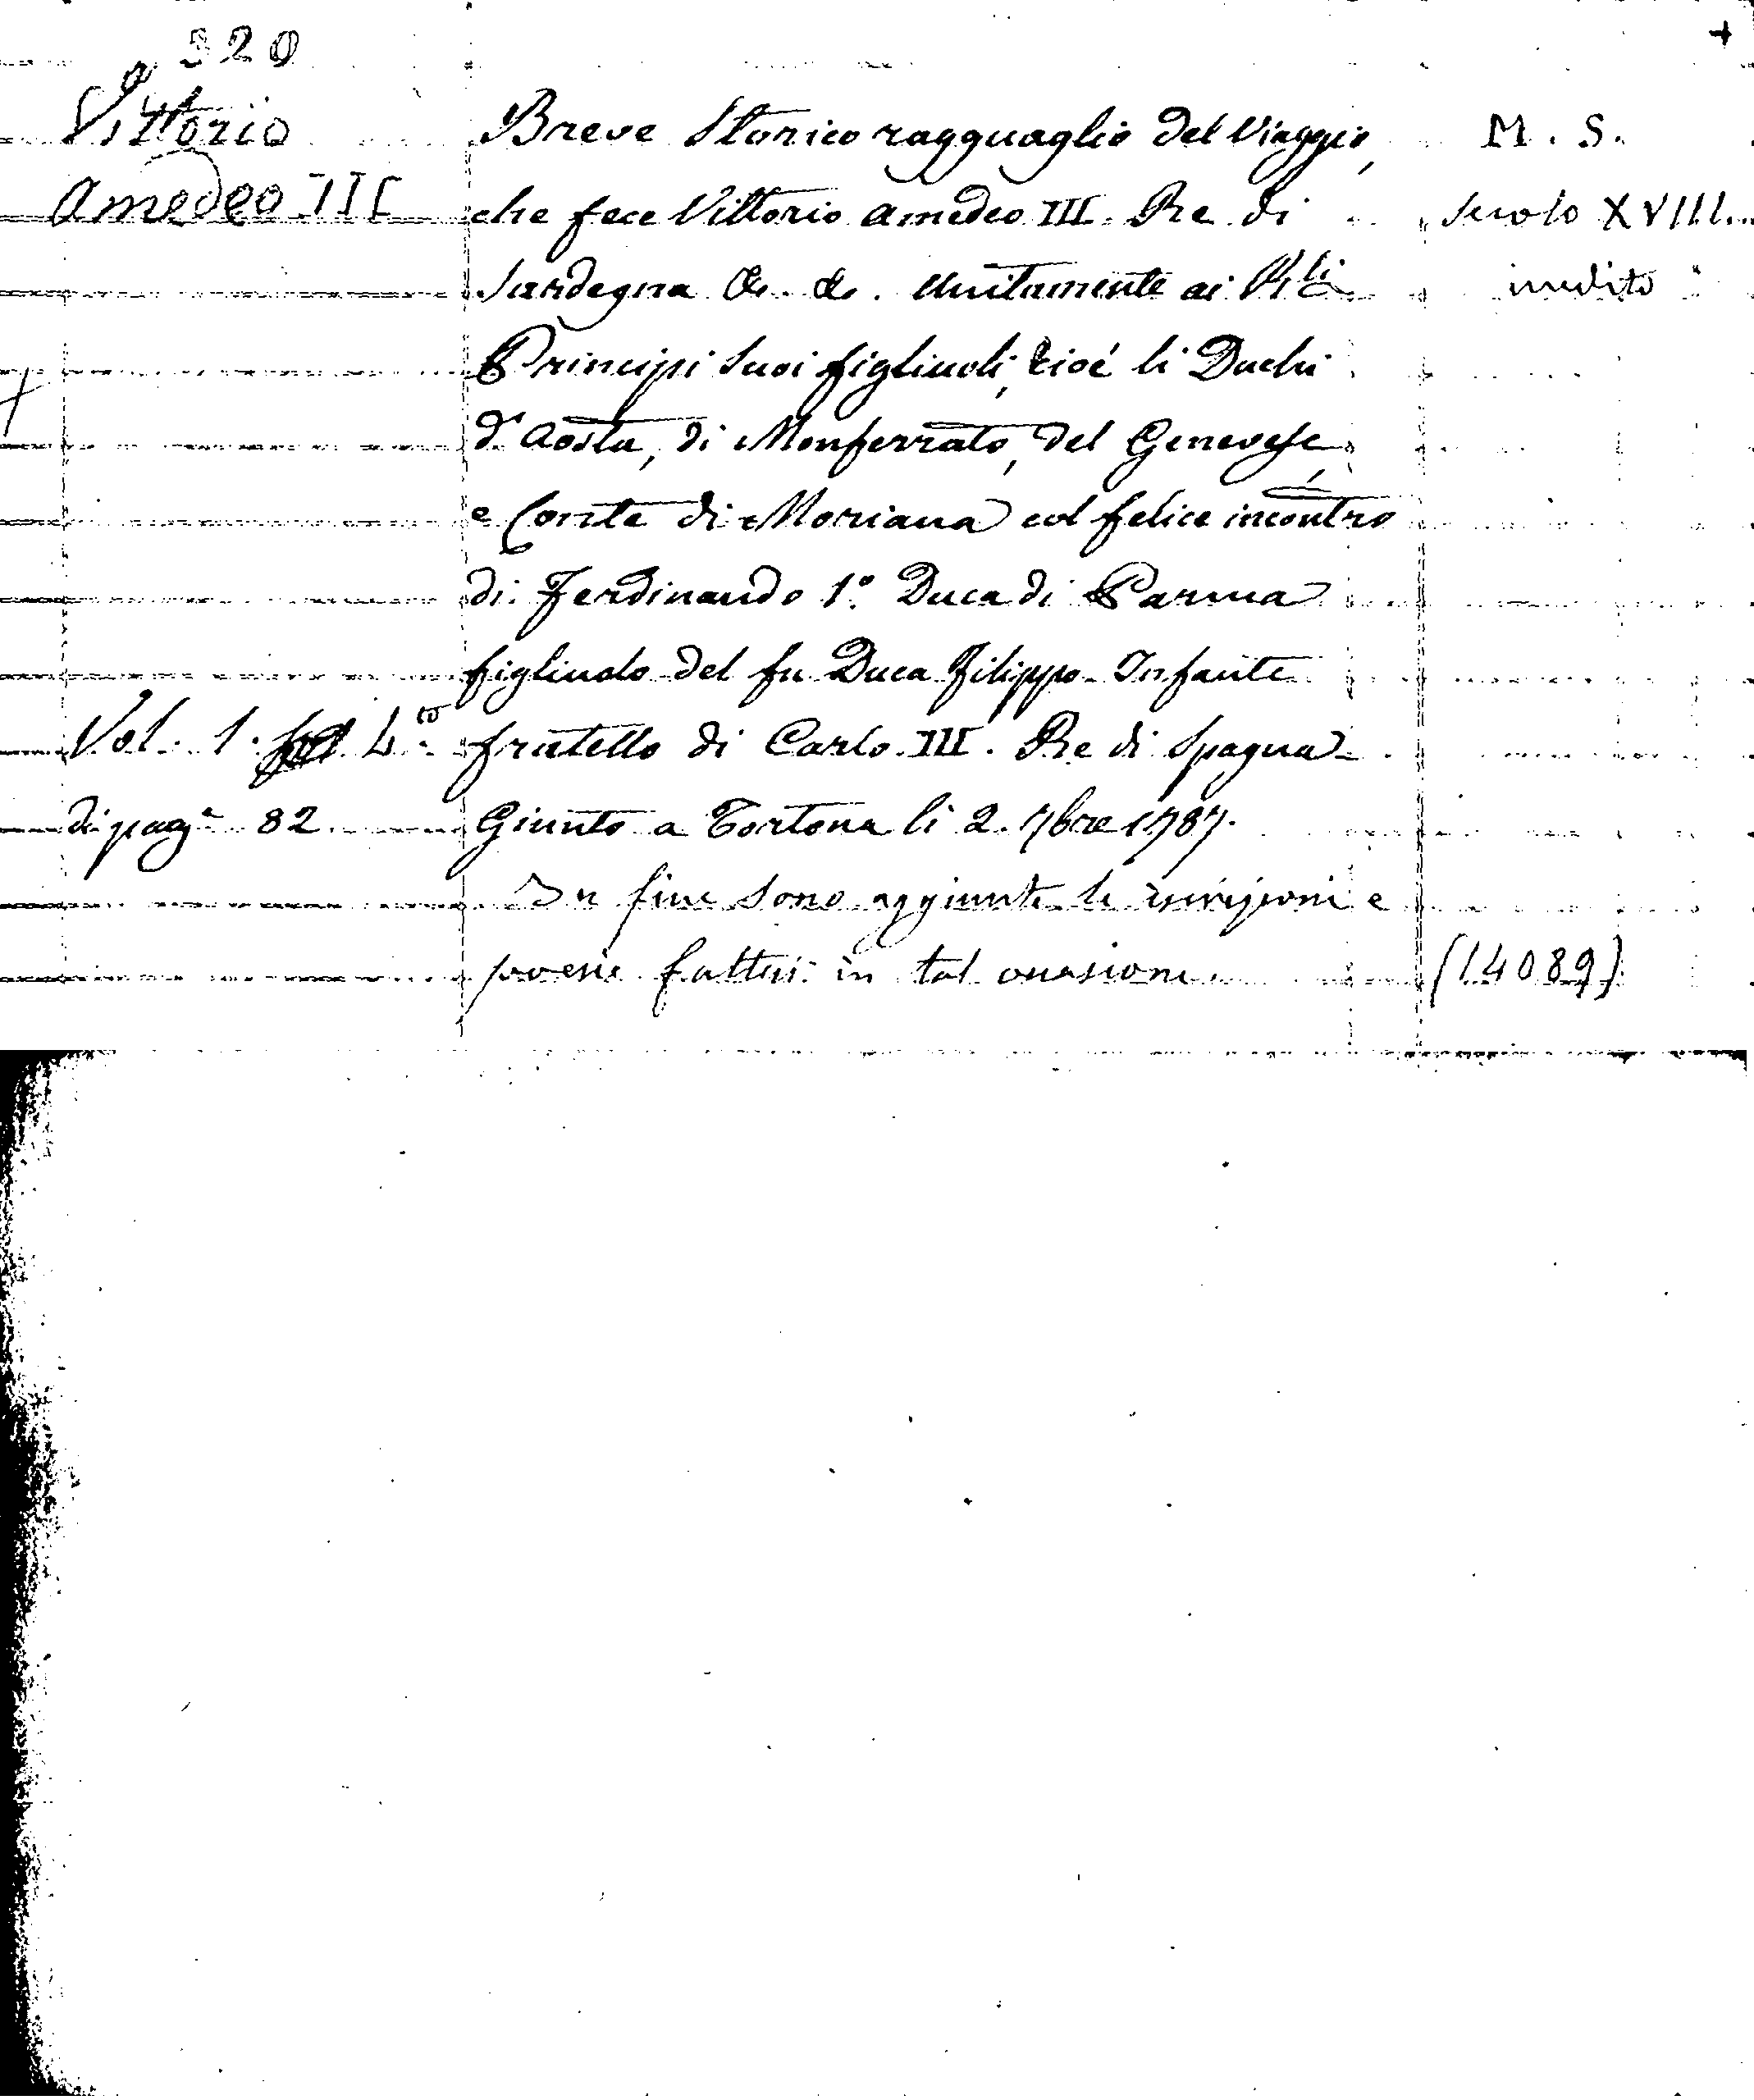 320
Vittorio
Amedeo III
Vol. 1. 4.to
di pag.e 82
Breve Storico ragguaglio del Viaggio,
che fece Vittorio Amedeo III. Re di
Sardegna &. &. Unitamente ai R.li
Principi Suoi figliuoli, cioé li Duchi
d'Aosta, di Monferrato, del Genevese,
e Conte di Moriana col felice incontro
di Ferdinando 1.º Duca di Parma
figliuolo del fu Duca Filippo Infante
fratello di Carlo III. Re di Spagna
Giunto a Tortona li 2. 7bre 1787.
In fine sono aggiunte le iscrizioni e
poesie fattesi in tal occasione.
M. S.
Secolo XVIII.
inedito
(14089)